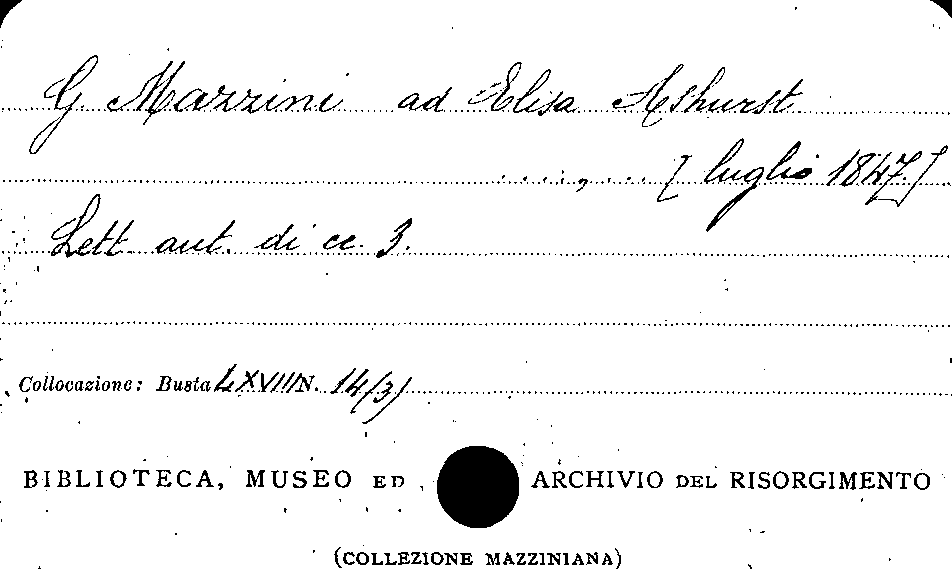 G. Mazzini ad Elisa Ashurst
....,... [luglio 1847.]
Lett. aut. di cc. 3.
Collocazione: Busta LXVIII N. 14/3/
BIBLIOTECA, MUSEO ED ARCHIVIO DEL RISORGIMENTO
(COLLEZIONE MAZZINIANA)